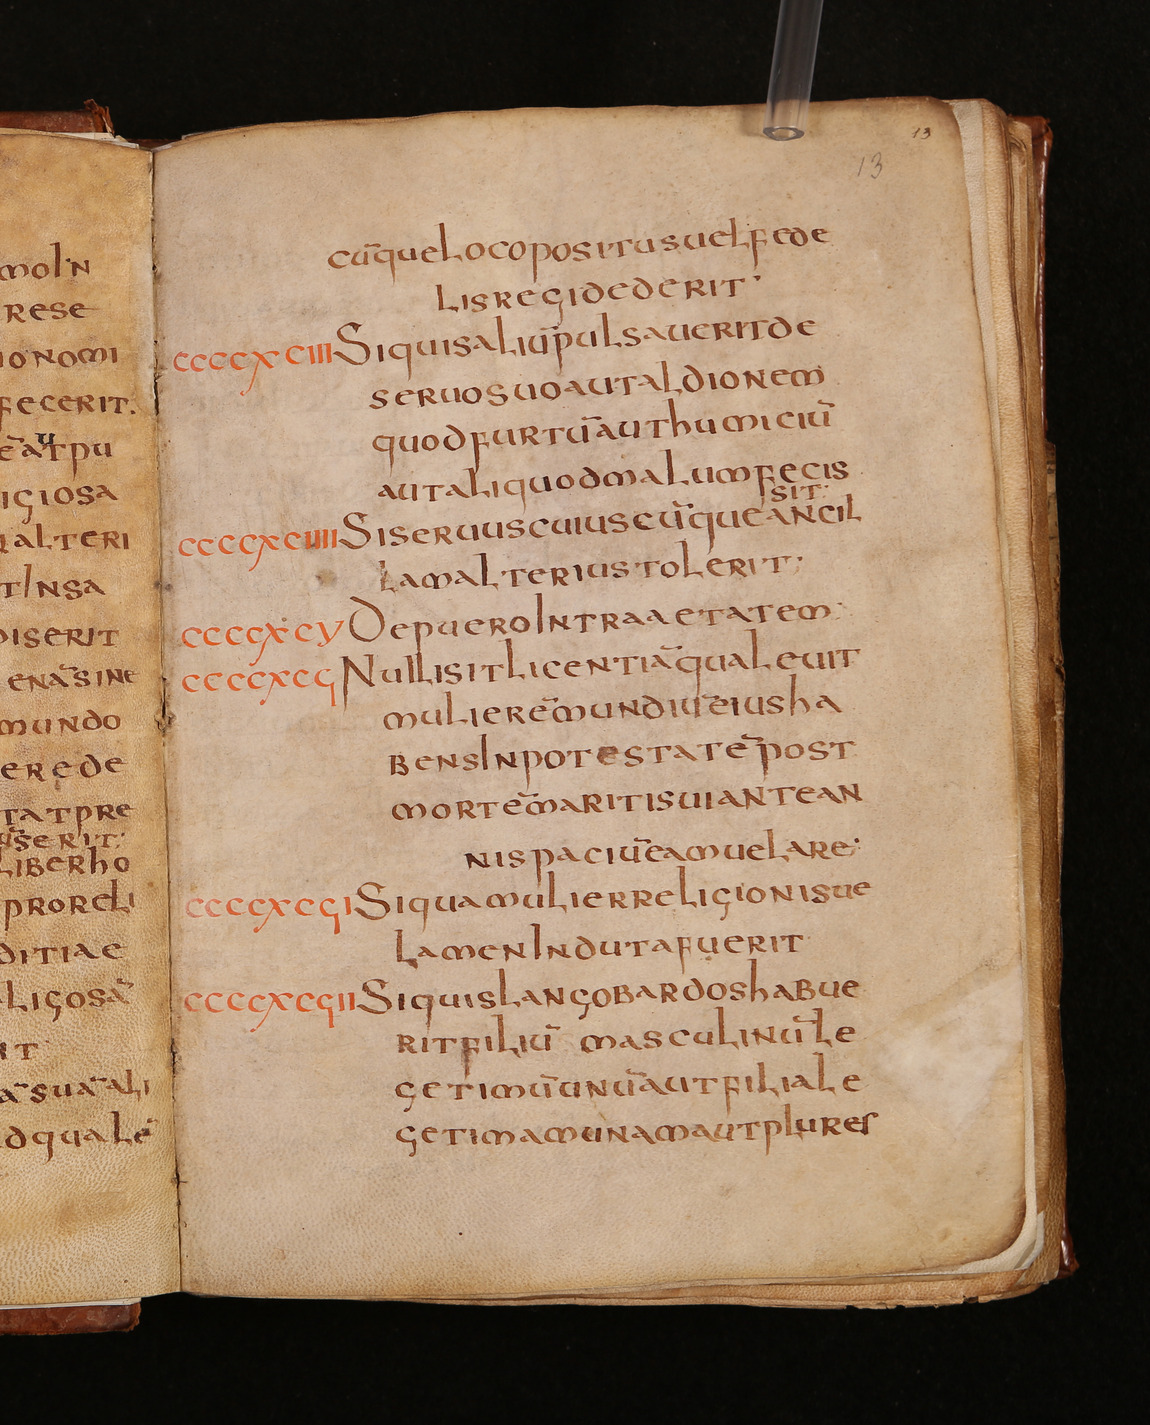 moln
rese
ionomi
fecerit.
eāutpu
igiosa
ualteri
tinsa
diserit
enāsine
mundo
erede
tatpre
serit:
liberho
proreli
ditiae
ligosā
it
āsuāali
dqualē
13
13
cūqueloco positus uel fede
lis regi dederit
ccccxciii Si quis aliū pulsauerit de
seruo suo aut aldionem
quod furtū aut humiciū
aut aliquod malum fecis
sit:
ccccxciiii Si seruus cuiuscūque ancil
lam alterius tolerit:
ccccxcv De puero intra aetatem
ccccxcϛ Nulli sit licentiā qualeuit
mulierē mundiū eius ha
bens in potestatē post
mortē mariti sui ante an
ni spaciū eam uelare:
ccccxcϛi Si qua mulier religionis ue
lamen induta fuerit
ccccxcϛii Si quis langobardos habue
rit filiū masculinū le
getimū unū aut filia le
getimam unam aut plures